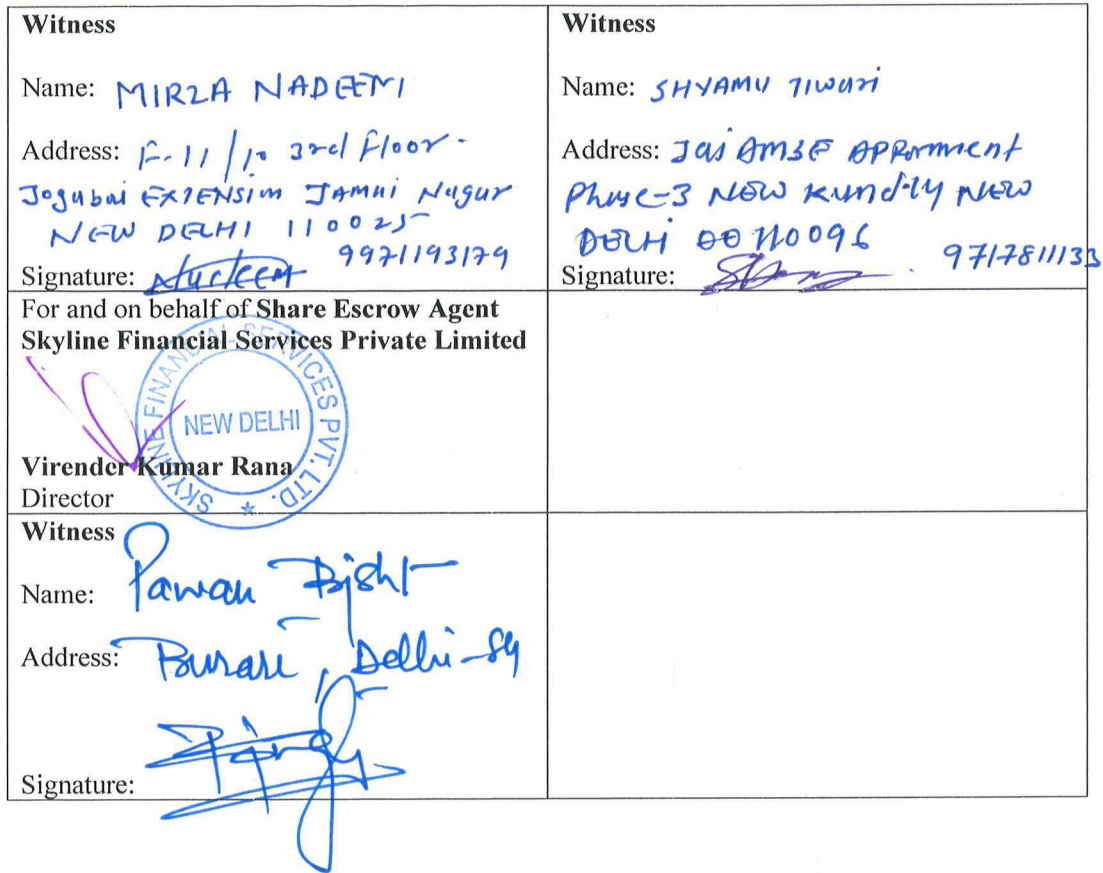 Witness
Name: MIRZA NADEEM
Address: F-11/10 3rd Floor -
Jogabai EXTENSION JAMAI Nagar
NEW DELHI 110025
9971193179
Signature: Nadeem
Witness
Name: SHYAMU TIWARI
Address: Jai AMBE APPORTMENT
Phase-3 NEW Kundly NEW
DELHI 110096
9717811133
Signature:
For and on behalf of Share Escrow Agent
Skyline Financial Services Private Limited
SKYLINE FINANCIAL SERVICES PVT. LTD.
NEW DELHI
Virender Kumar Rana
Director
Witness
Name: Pawan Bisht
Address: Burari, Delhi-84
Signature: